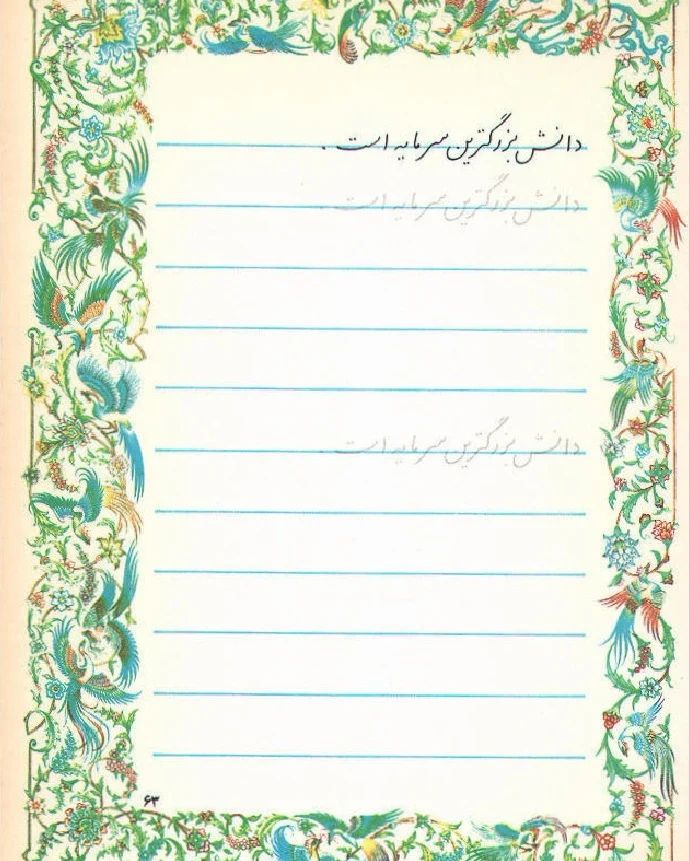 دانش بزرگترین سرمایه است .
دانش بزرگترین سرمایه است .
دانش بزرگترین سرمایه است .
۶۳